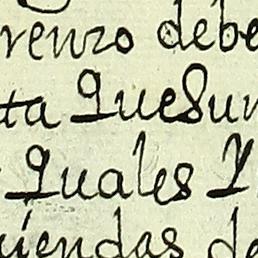 renzo debe
ta QueSun
Quales Y
uiendas de